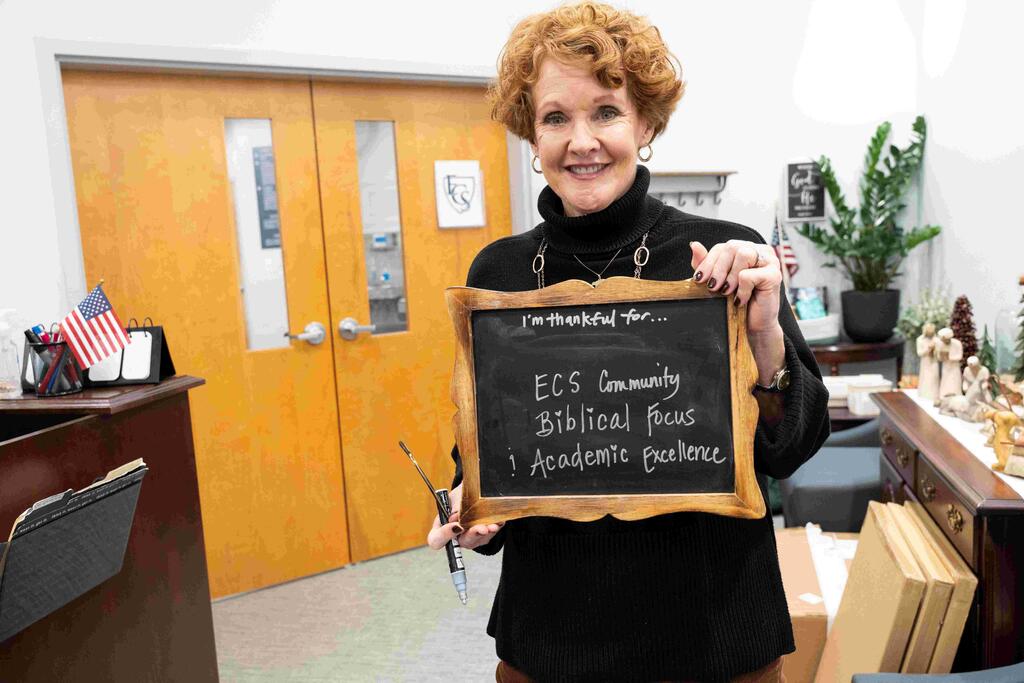 I'm thankful for...
ECS Community
Biblical Focus
& Academic Excellence
ECS